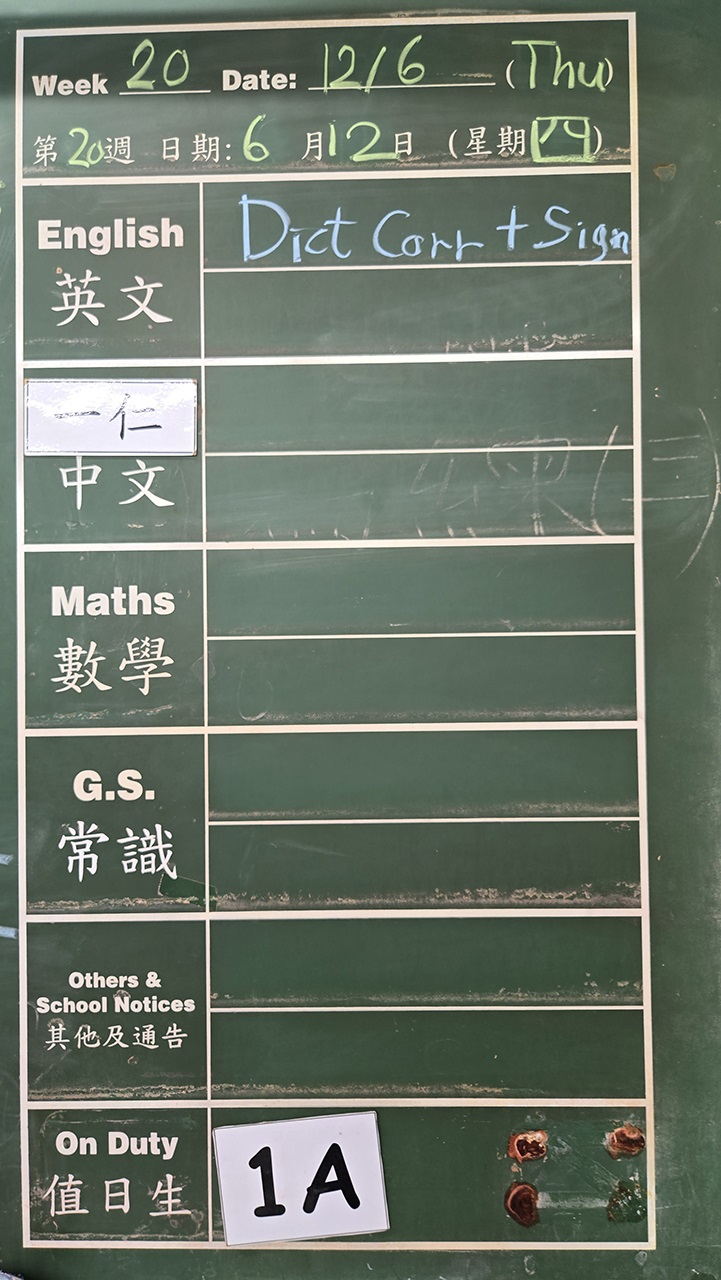 Week 20 Date: 12/6 (Thu)
第20週 日期: 6月12日 (星期四)
English Dict Corr + Sign
英文
一仁
中文
Maths
數學
G.S.
常識
Others &
School Notices
其他及通告
On Duty 1A
值日生